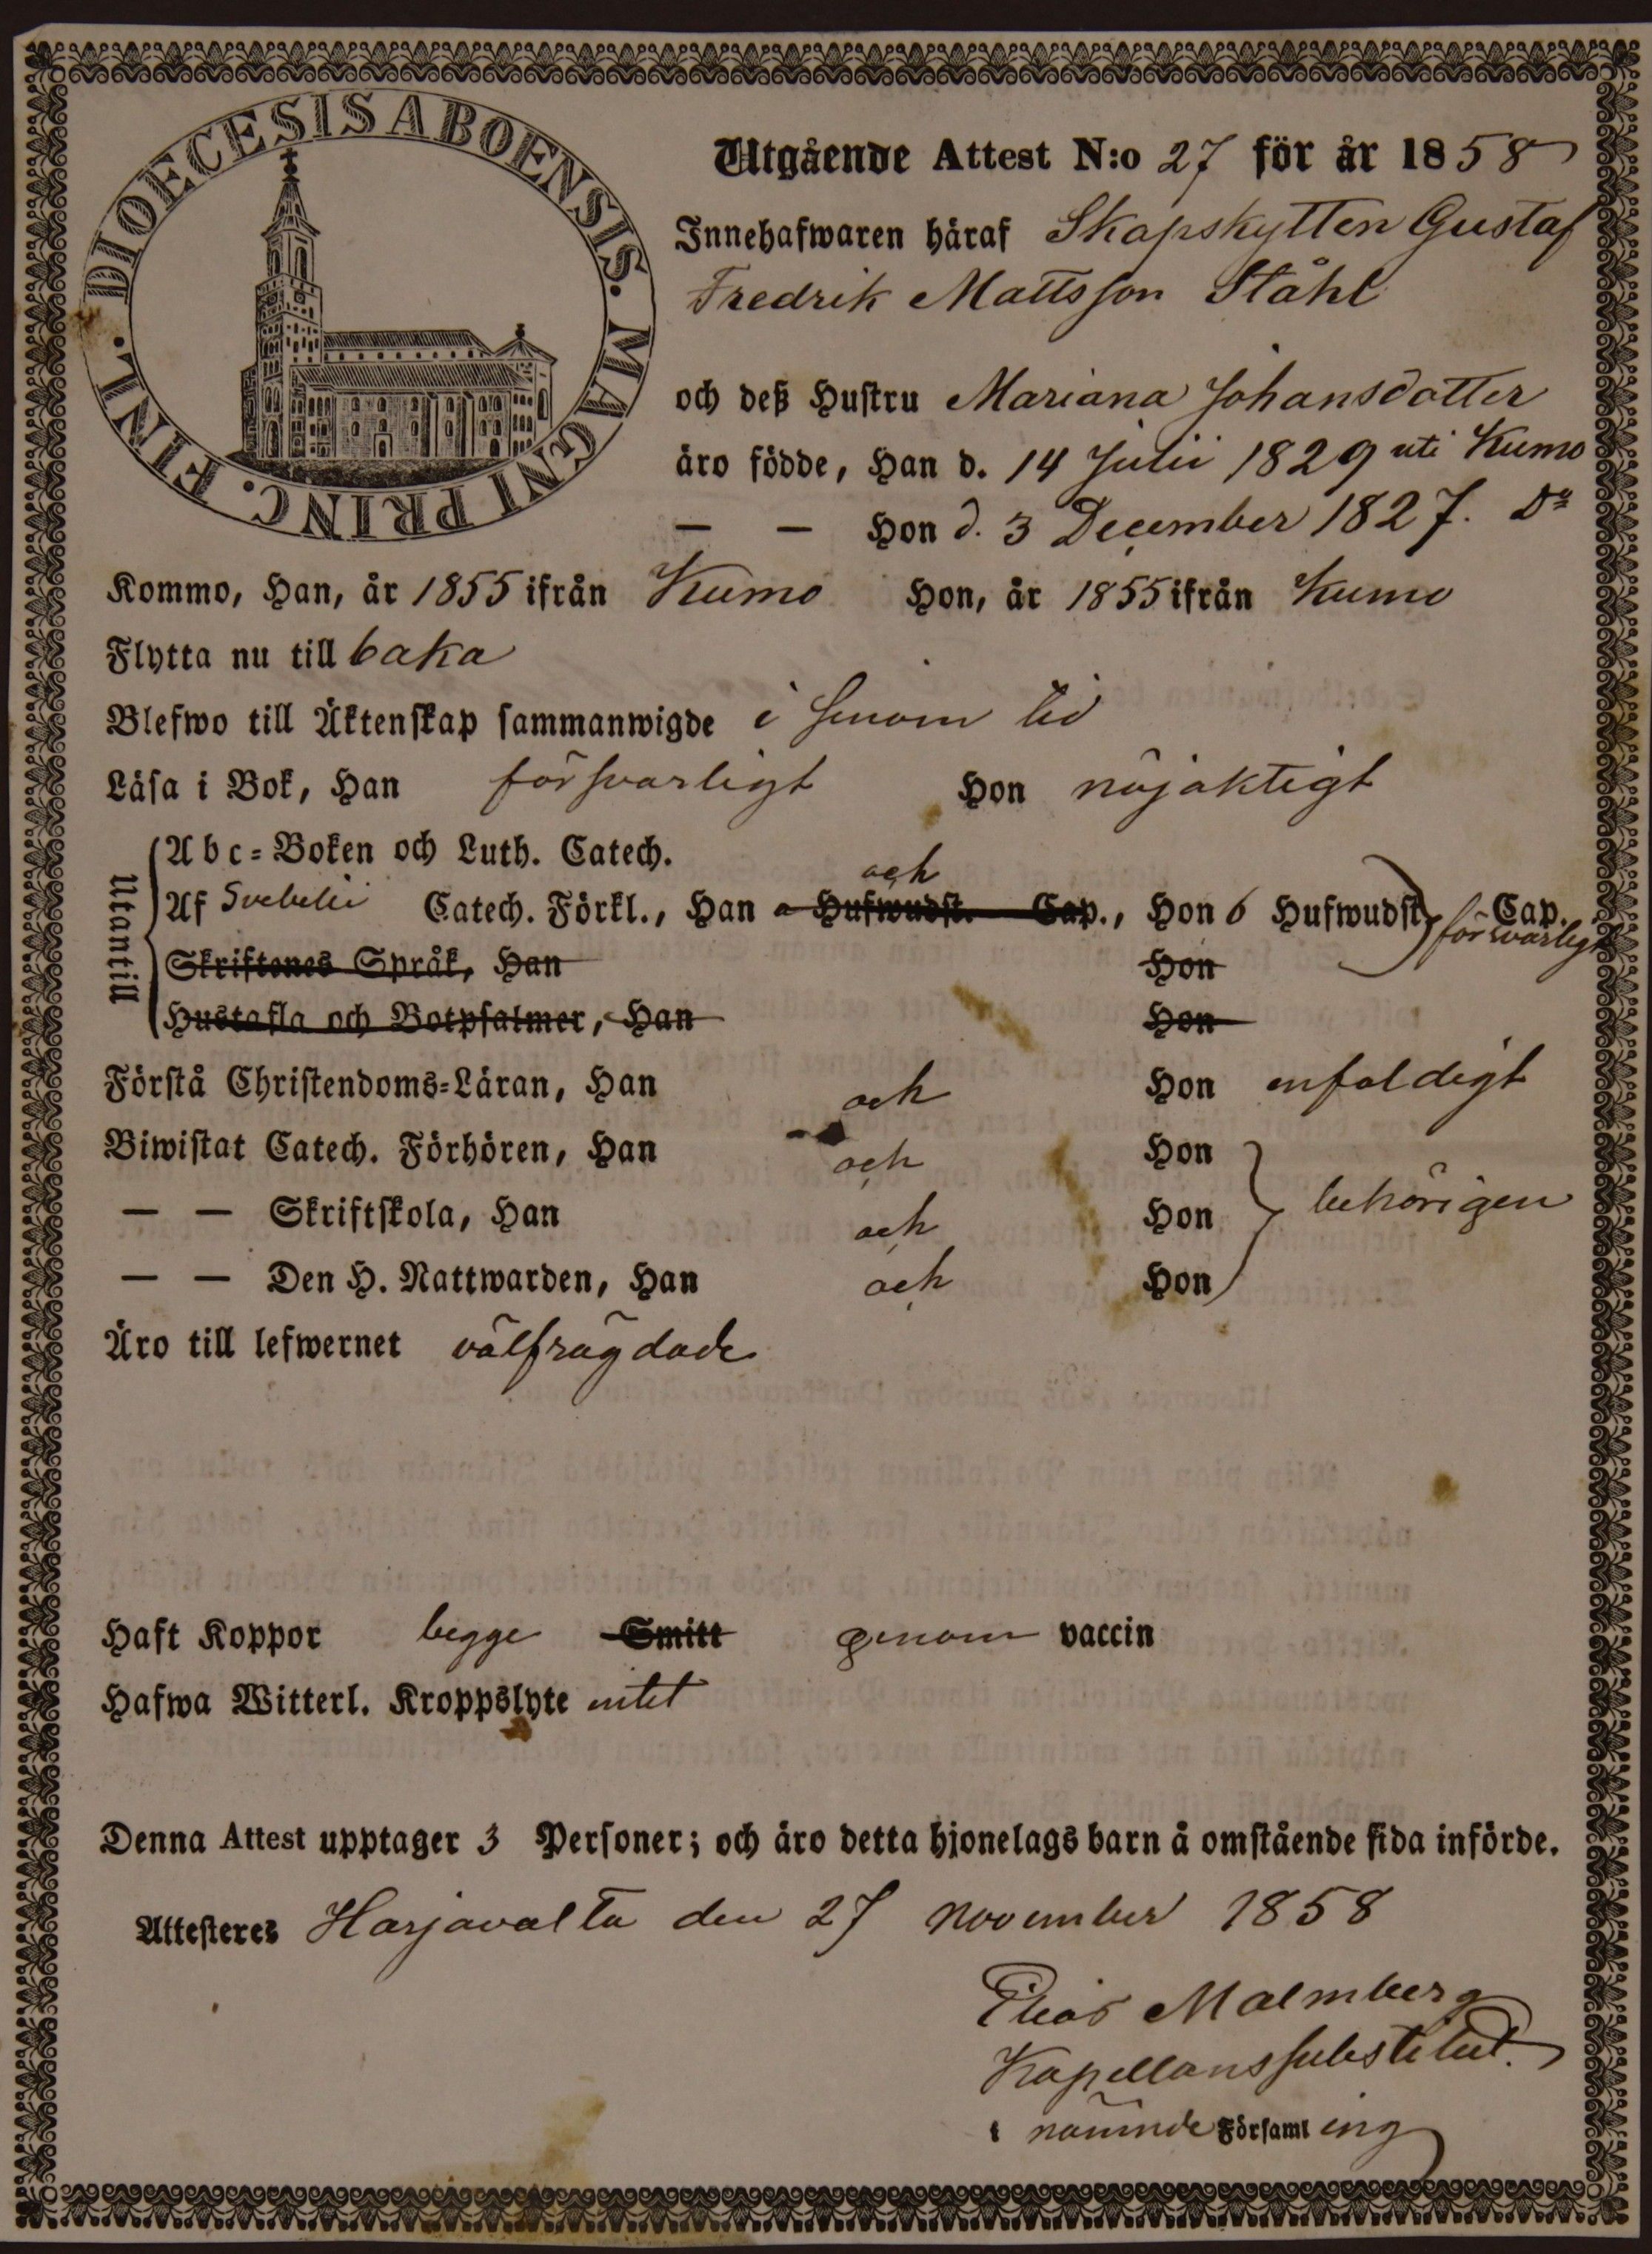 DIOECESIS ABOENSIS. MAGNI PRINC. FINL.
Utgående Attest N:o 27 för år 1858
Innehafwaren häraf Skapskytten Gustaf
Fredrik Mattsson Ståhl
och deß Hustru Mariana Johansdotter
äro födde, Han d. 14 Julii 1829 uti Kumo
— — Hon d. 3 December 1827. Do
Kommo, Han, år 1855 ifrån Kumo Hon, år 1855 ifrån Kumo
Flytta nu till baka
Blefwo till Äktenskap sammanwigde i sinom tid
Läsa i Bok, Han försvarligt Hon nöjaktigt
Utantill
Abc-Boken och Luth. Catech.
och
Af Svebelii Catech. Förkl., Han Hufwudst. Cap., Hon 6 Hufwudst. Cap.
försvarligt
Skriftenes Språk, Han Hon
Hustafla och Botpsalmer, Han Hon
Förstå Christendoms-Läran, Han och Hon enfaldigt
Biwistat Catech. Förhören, Han och Hon
— — Skriftskola, Han och Hon behörigen
— — Den H. Nattwarden, Han och Hon
Äro till lefwernet välfrägdade
Haft Koppor begge Smitt genom vaccin
Hafwa Witterl. Kroppslyte intet
Denna Attest upptager 3 Personer; och äro detta hjonelags barn å omstående sida införde.
Attesteres Harjavalta den 27 November 1858
Elias Malmberg
Kapellanssubstitut.
i nämnde Församling